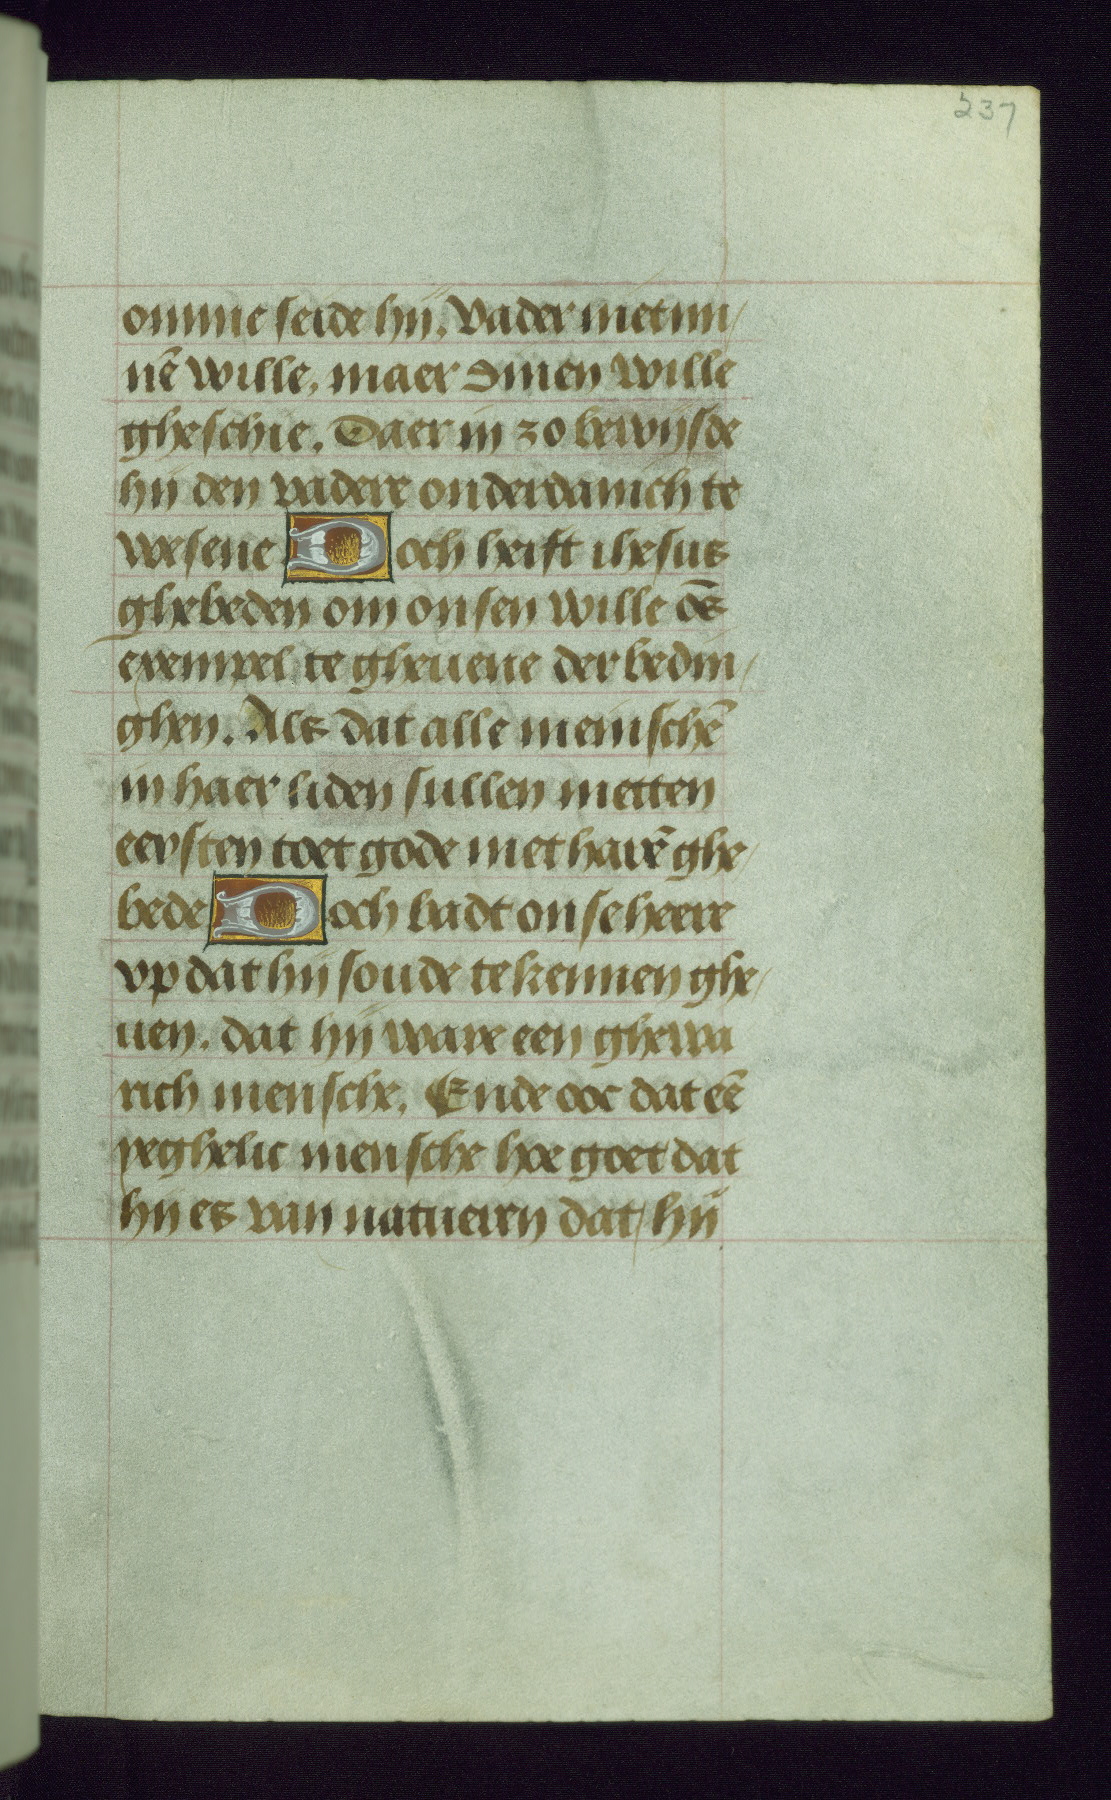 237
omme seide hij. Vader niet mi/
nē wille, maer dinen wille
gheschie. Daer in zo bewijsde
hij den vadere onderdanich te
wesene Doch heift ihesus
ghebeden om onsen wille ōs
exempel te gheuene der bedin/
ghen. Als dat alle menschē
in haer liden sullen metten
eersten toet gode met harē ghe/
bede Doch badt onse heere
vp dat hij soude te kennen ghe/
uen. dat hij ware een ghewa
rich mensche. Ende ooc dat eē
yeghelic mensche hoe goet dat
hij es van natueren dat hij